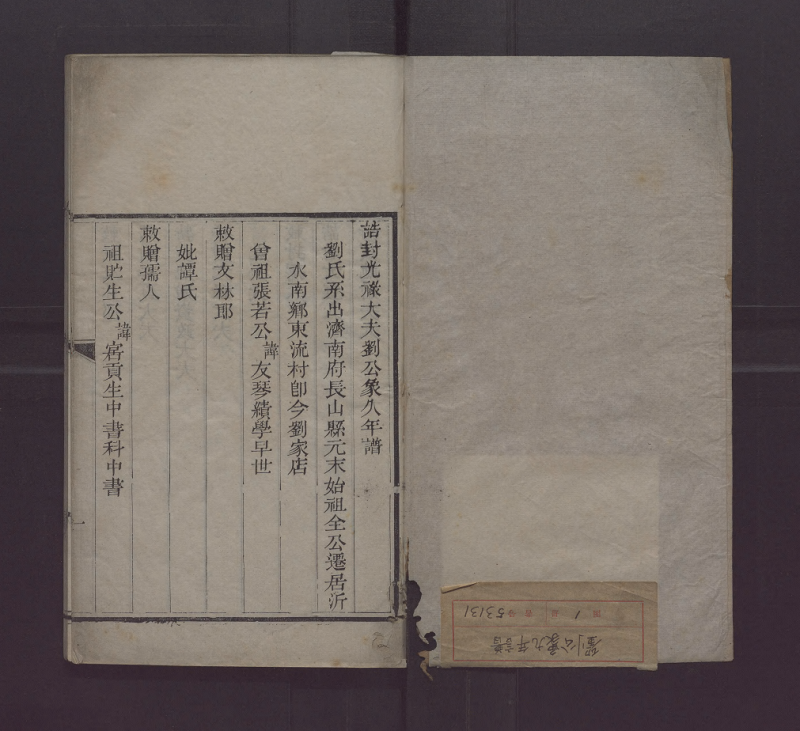 誥封光祿大夫劉公象久年譜
劉氏系出濟南府長山縣元末始祖全公遷居沂
水南鄉東流村即今劉家店
曾祖張若公諱友琴績學早世
敕贈文林郎
妣譚氏
敕贈孺人
祖貯生公諱宭貢生中書科中書
一
劉公象九年譜
1
53131